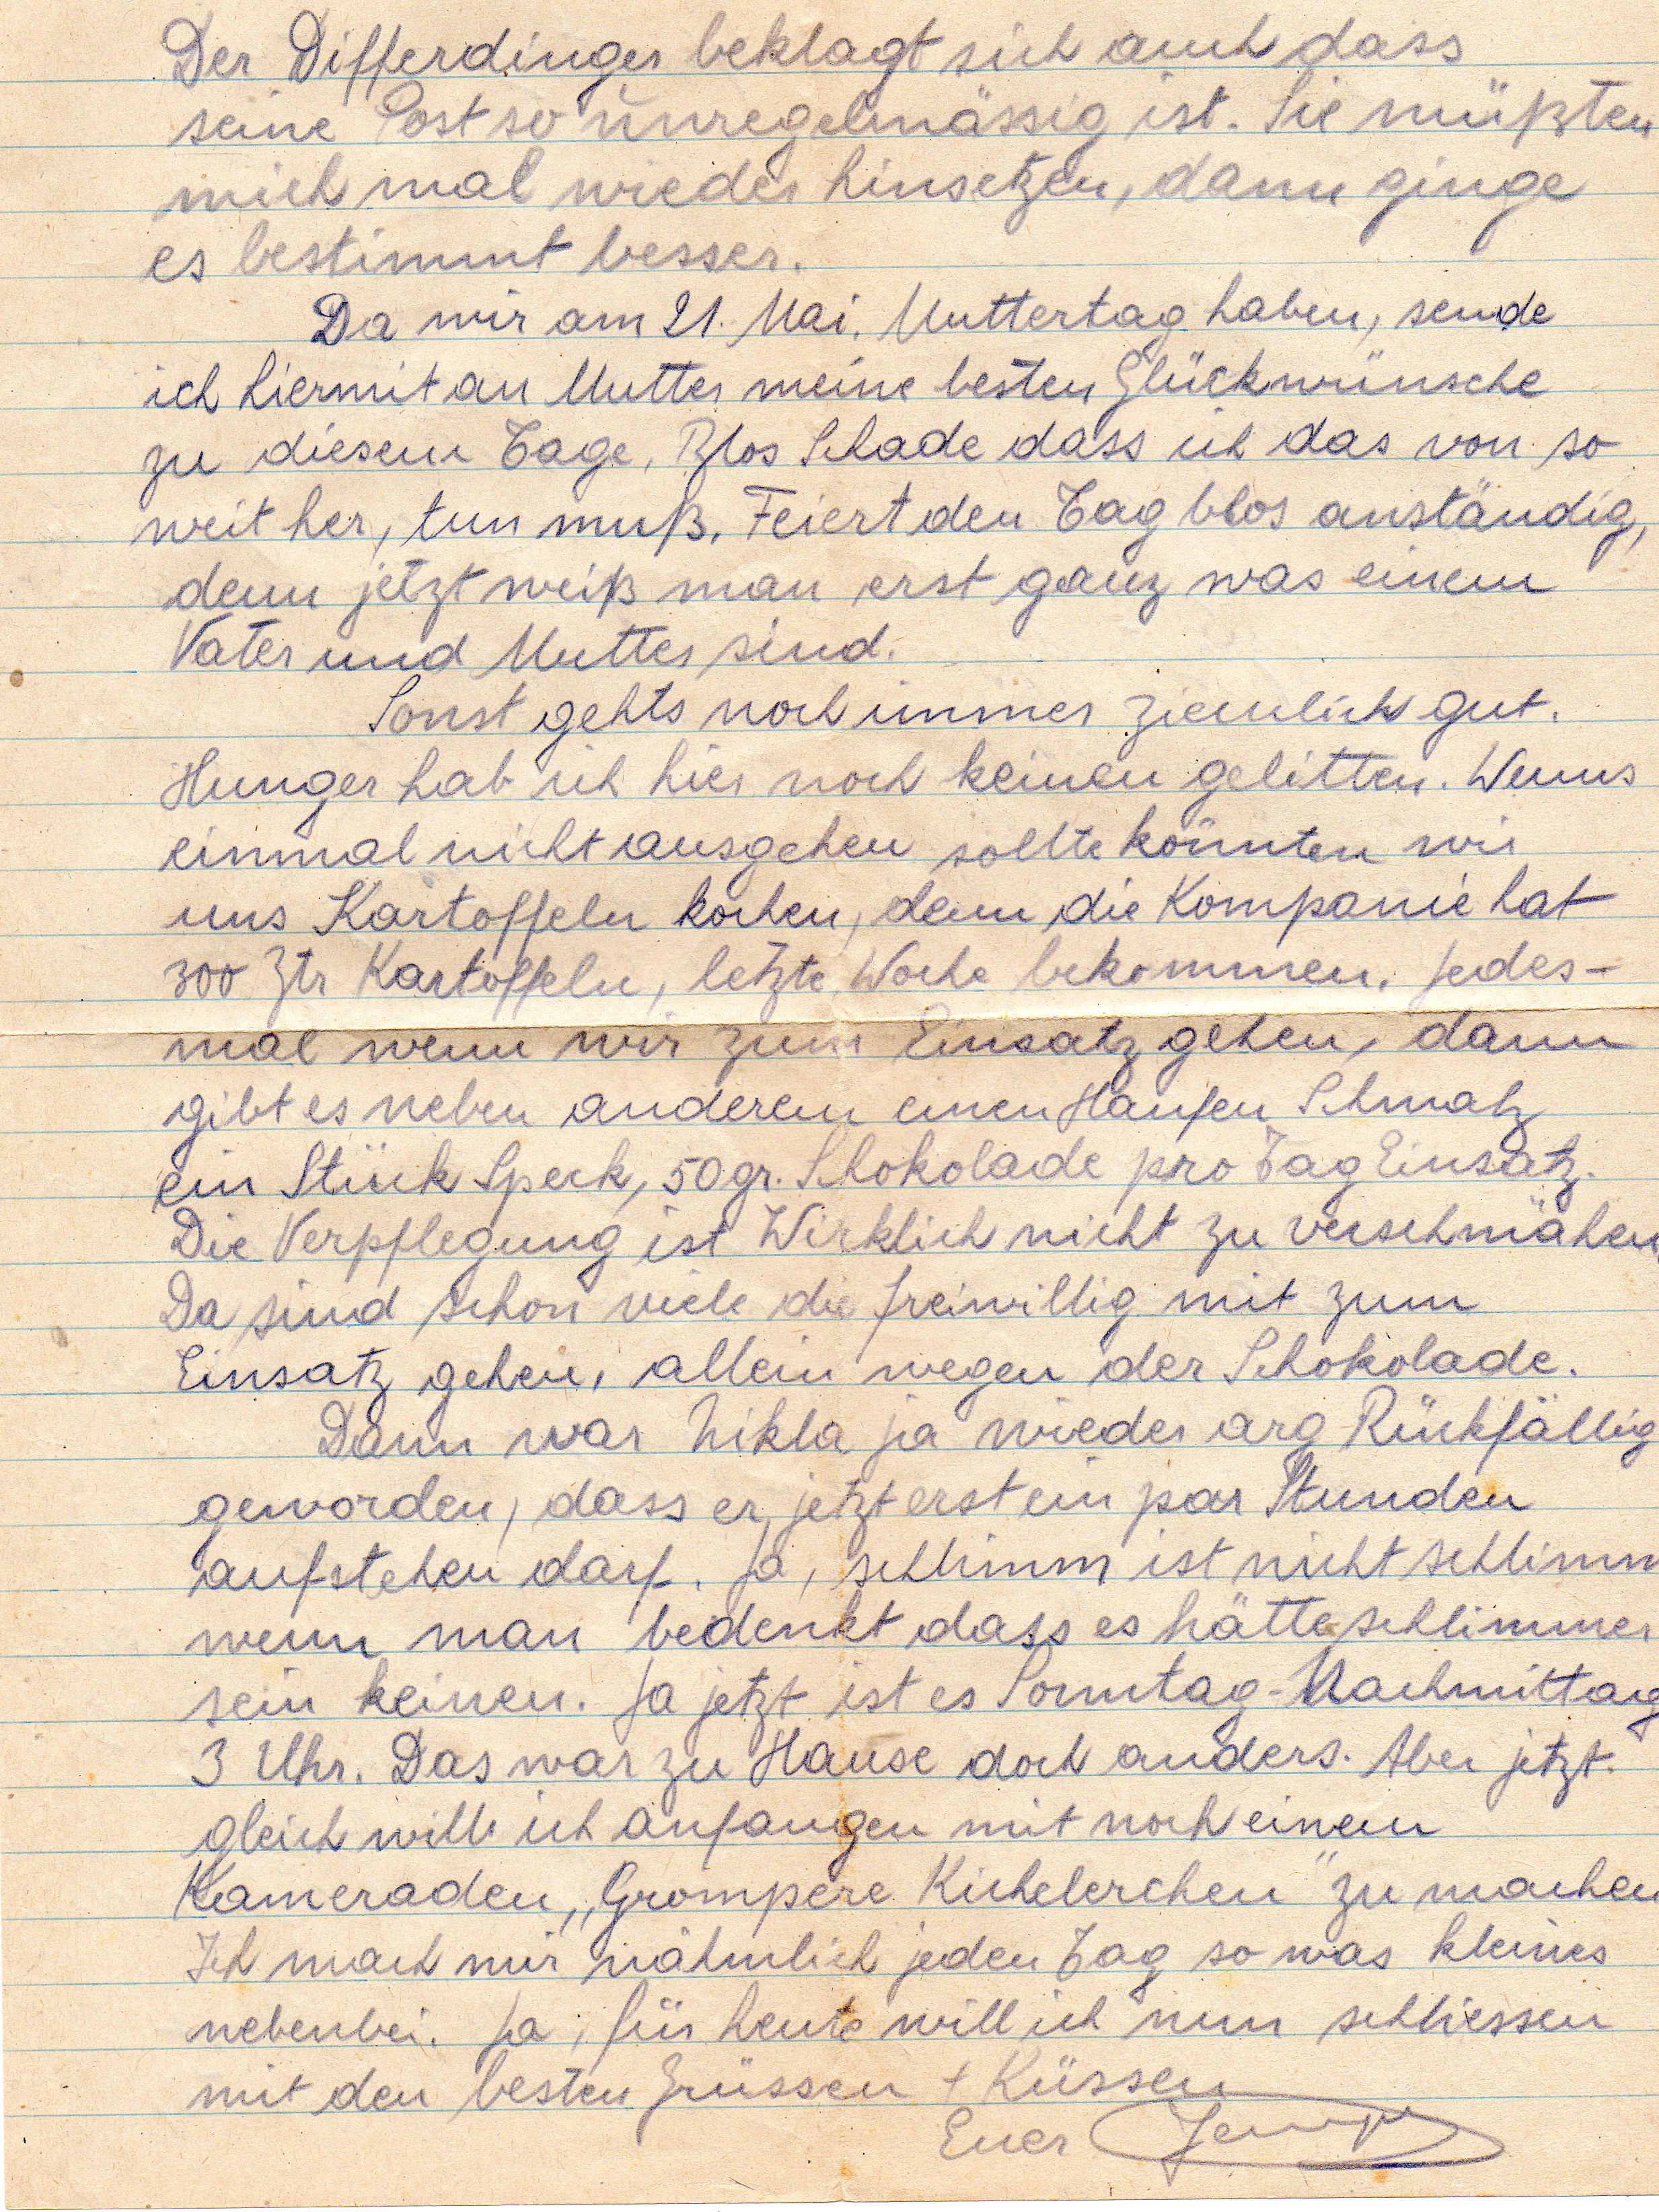 Der Differdinger beklagt sich auch dass
seine Post so unregelmässig ist. Sie müßten
mich mal wieder hinsetzen, dann ginge
es bestimmt besser.
Da wir am 21. Mai. Muttertag haben, sende
ich hiermit an Mutter meine besten Glückwünsche
zu diesem Tage. Blos Schade dass ich das von so
weit her, tun muß. Feiert den Tag blos anständig,
denn jetzt weiß man erst ganz was einem
Vater und Mutter sind.
Sonst gehts noch immer ziemlich gut.
Hunger hab ich hier noch keinen gelitten. Wenns
einmal nicht ausgehen sollte könnten wir
uns Kartoffeln kochen, denn die Kompanie hat
300 Ztr Kartoffeln, letzte Woche bekommen. Jedes-
mal wenn wir zum Einsatz gehen, dann
gibt es neben anderem einen Haufen Schmalz
ein Stück Speck, 50gr. Schokolade pro Tag Einsatz.
Die Verpflegung ist Wirklich nicht zu verschmähen
Da sind schon viele die freiwillig mit zum
Einsatz gehen, allein wegen der Schokolade.
Dann war Nikla ja wieder arg Rückfällig
geworden, dass er jetzt erst ein par Stunden
aufstehen darf. Ja, schlimm ist nicht schlimm
wenn man bedenkt dass es hätte schlimmer
sein keinen. Ja jetzt ist es Sonntag-Nachmittag
3 Uhr. Das war zu Hause doch anders. Aber jetzt
gleich will ich anfangen mit noch einem
Kameraden „Grompere Kichelerchen" zu machen
Ich mach mir nähmlich jeden Tag so was kleines
nebenbei. Ja, für heute will ich nun schliessen
mit den besten Grüssen + Küssen
Euer Jemp